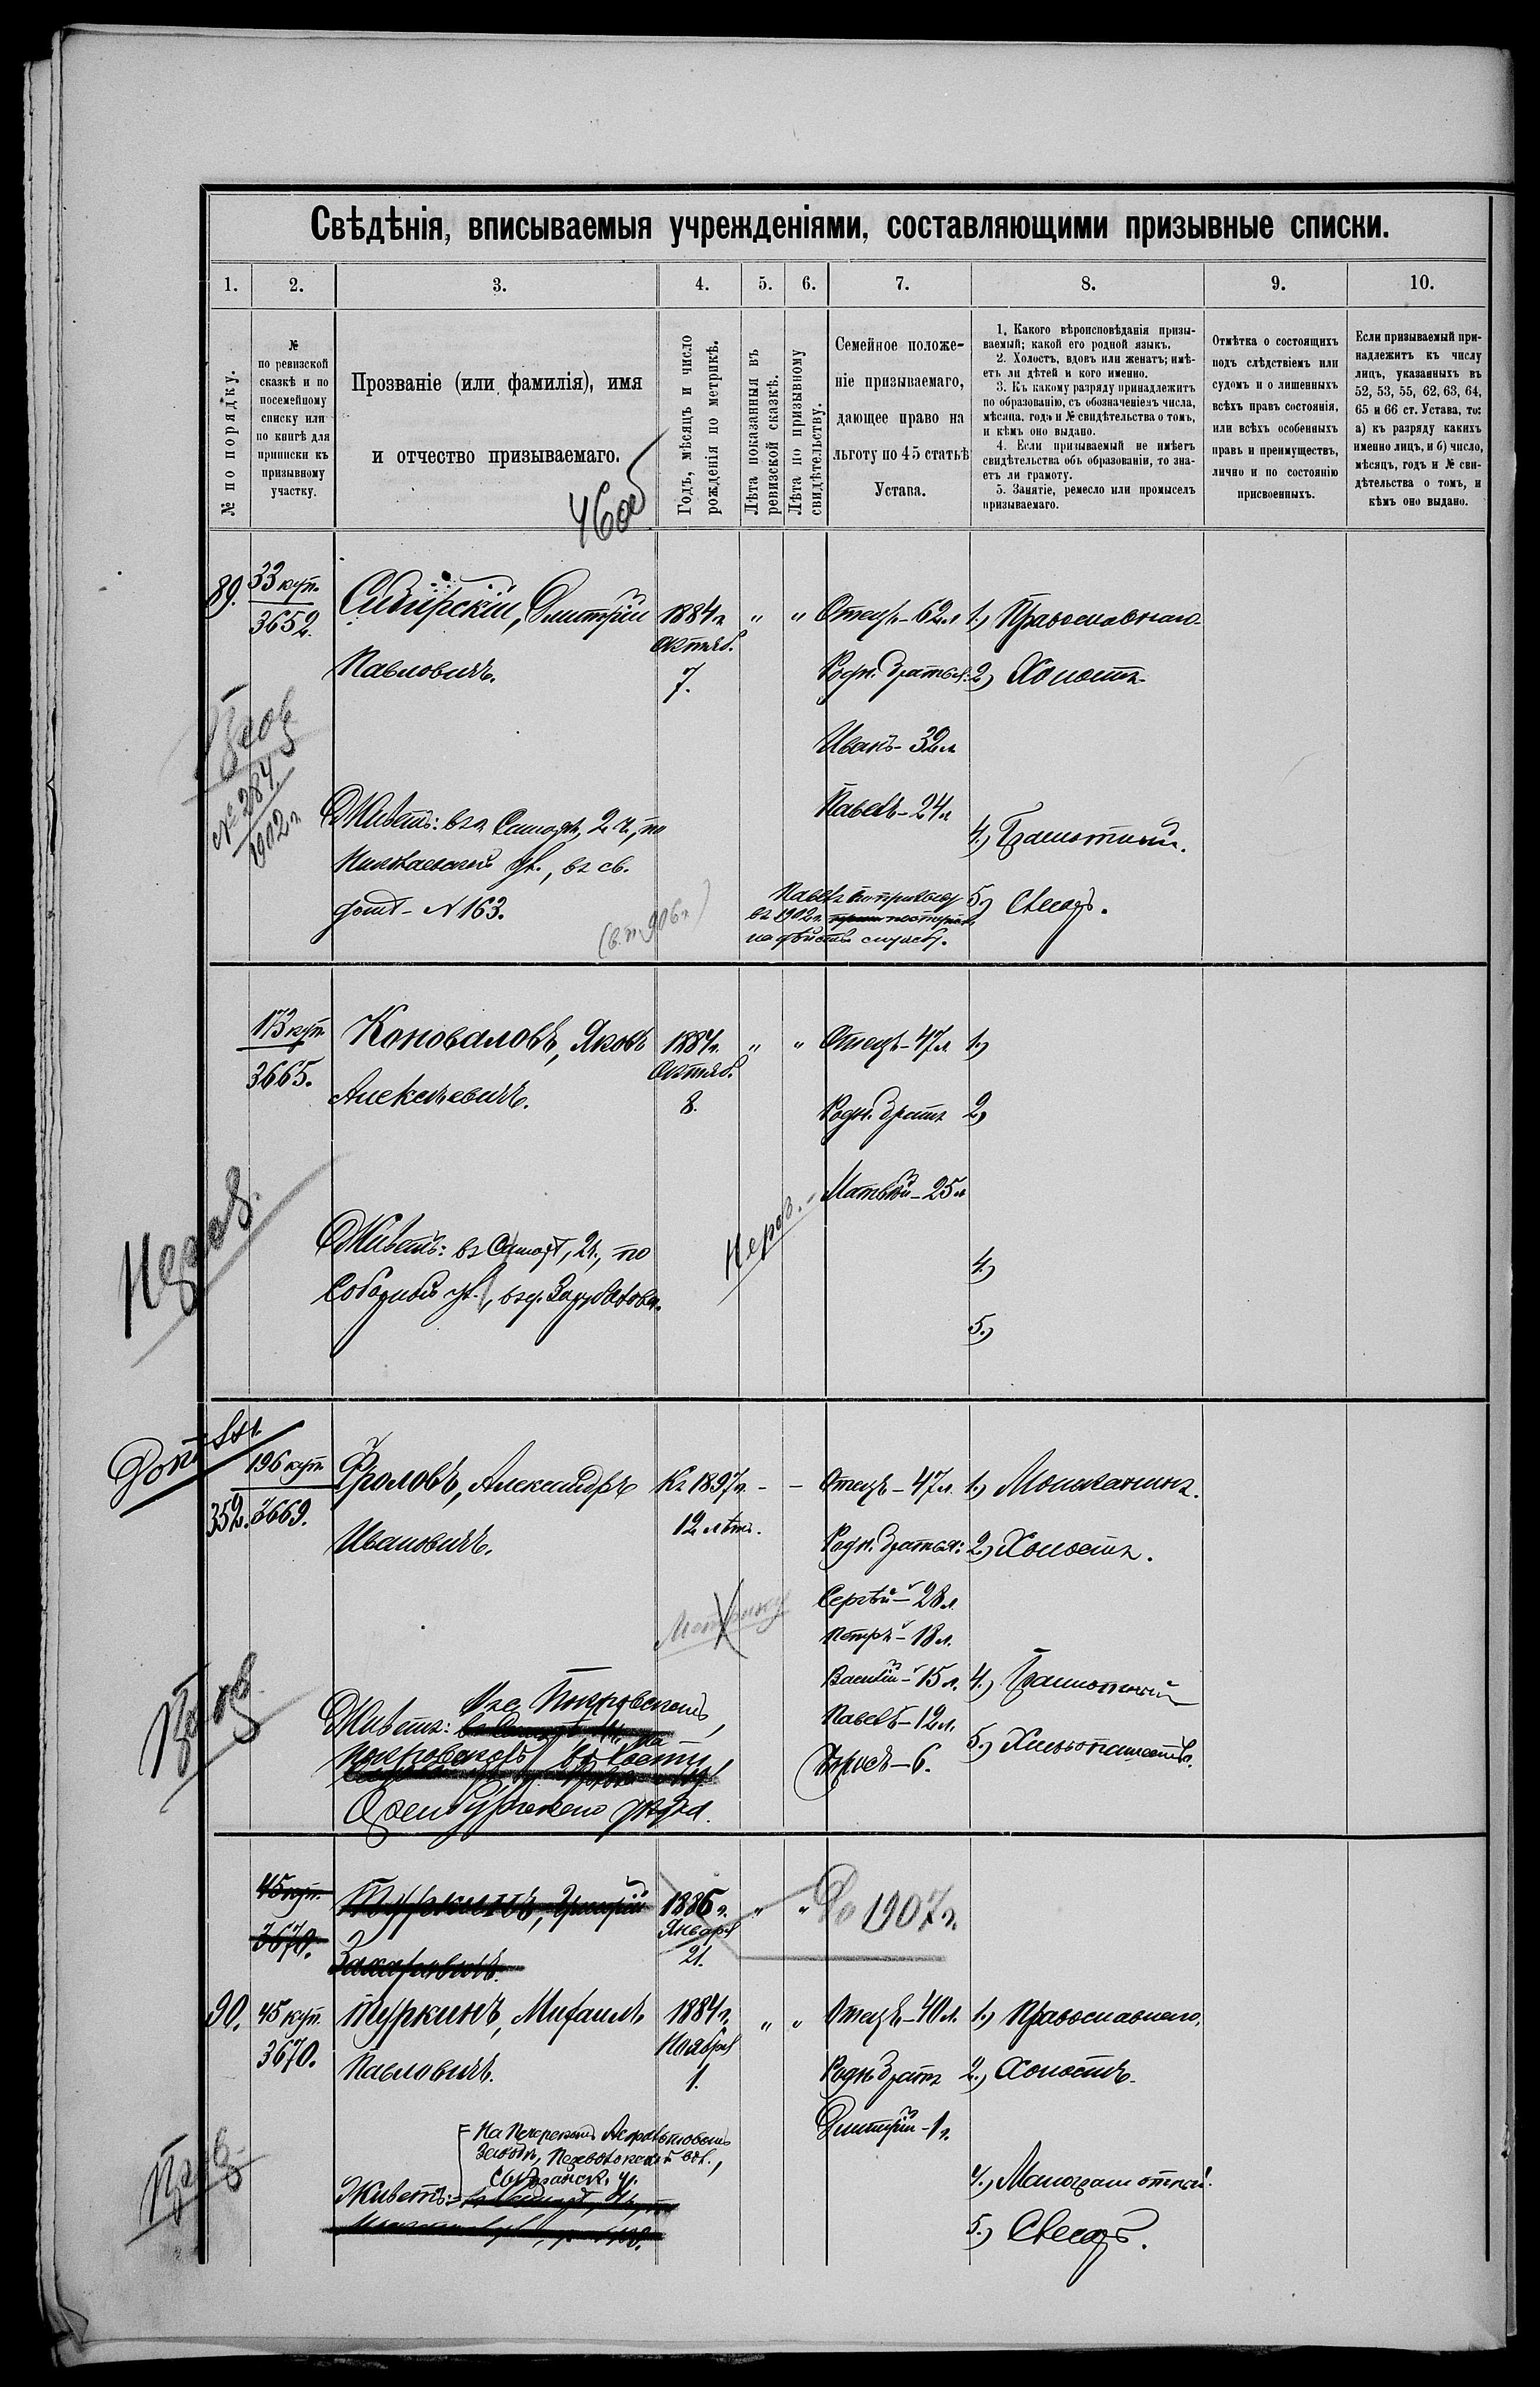 Свѣдѣнія, вписываемыя учрежденіями, составляющими призывные списки.
1. 2. 3. 4. 5. 6. 7. 8. 9. 10.
№ по порядку.
№
по ревизской
сказкѣ и по
посемейному
списку или
по книгѣ для
приписки къ
призывному
участку.
Прозваніе (или фамилія), имя
и отчество призываемаго.
Годъ, мѣсяцъ и число
рожденія по метрикѣ.
Лѣта показанныя въ
ревизской сказкѣ.
Лѣта по призывному
свидѣтельству.
Семейное положе-
ніе призываемаго,
дающее право на
льготу по 45 статьѣ
Устава.
1. Какого вѣроисповѣданія призы-
ваемый; какой его родной языкъ.
2. Холостъ, вдовъ или женатъ; имѣ-
етъ ли дѣтей и кого именно.
3. Къ какому разряду принадлежитъ
по образованію, съ обозначеніемъ числа,
мѣсяца, года и № свидѣтельства о томъ,
и кѣмъ оно выдано.
4. Если призываемый не имѣетъ
свидѣтельства объ образованіи, то зна-
етъ ли грамоту.
5. Занятіе, ремесло или промыселъ
призываемаго.
Отмѣтка о состоящихъ
подъ слѣдствіемъ или
судомъ и о лишенныхъ
всѣхъ правъ состоянія,
или всѣхъ особенныхъ
правъ и преимуществъ,
лично и по состоянію
присвоенныхъ.
Если призываемый при-
надлежитъ къ числу
лицъ, указанныхъ въ
52, 53, 55, 62, 63, 64,
65 и 66 ст. Устава, то:
а) къ разряду какихъ
именно лицъ, и б) число,
мѣсяцъ, годъ и № сви-
дѣтельства о томъ, и
кѣмъ оно выдано.
89.
33 куп.
3652.
Сибирскій, Дмитрій
Павловичъ.
1884 г.
Октяб.
7.
" "
Отецъ - 62 л
Родн. братья:
Иванъ - 32 л
Павелъ - 24 л
1.) Православнаго
2) Холостъ.
4.) Грамотный.
5.) Слесарь.
№ 284
1902 г.
Живетъ: въ г. Самарѣ, 2 ч., по
Николаевской ул., въ св.
домѣ - № 163.
(в. п. 906 г.)
Павелъ по призыву
въ 1902 г.
на дѣйств. службу.
173 куп
3665.
Коноваловъ, Яковъ
Алексѣевичъ.
1884 г.
Октяб.
8.
" "
Отецъ - 47 л
Родн. братъ
Матвѣй - 25 л
1.)
2.)
4.)
5.)
Живетъ: въ Самарѣ, 2 ч., по
Соборной ул., въ д.
352.
196 куп
3669.
Фроловъ, Александръ
Ивановичъ.
Къ 1897 г.
12 лѣтъ.
- -
Отецъ - 47 л.
Родн. братья:
Сергѣй - 28 л.
Петръ - 18 л.
Василій - 15 л.
Павелъ - 12 л.
Борисъ - 6.
1.) Молоканинъ.
2.) Холостъ.
4.) Грамотный
5.) Хлѣбопашество.
Метрику
Живетъ: въ с. Покровскомъ,
Оренбургскаго уѣзда.
45 куп.
3670.
Туркинъ, Григорій
Захаровичъ.
1886 г.
Января
21.
" "
До 1907 г.
90.
45 куп.
3670.
Туркинъ, Михаилъ
Павловичъ.
1884 г.
Ноября
1.
" "
Отецъ - 40 л.
Родн. братъ
Дмитрій - 1 г.
1.) Православнаго,
2.) Холостъ.
4.) Малограмотный.
5.) Слесарь.
На Печерскомъ Асфальтовомъ
Заводѣ, Переволокской вол.,
Сызранск. у.
Живетъ: